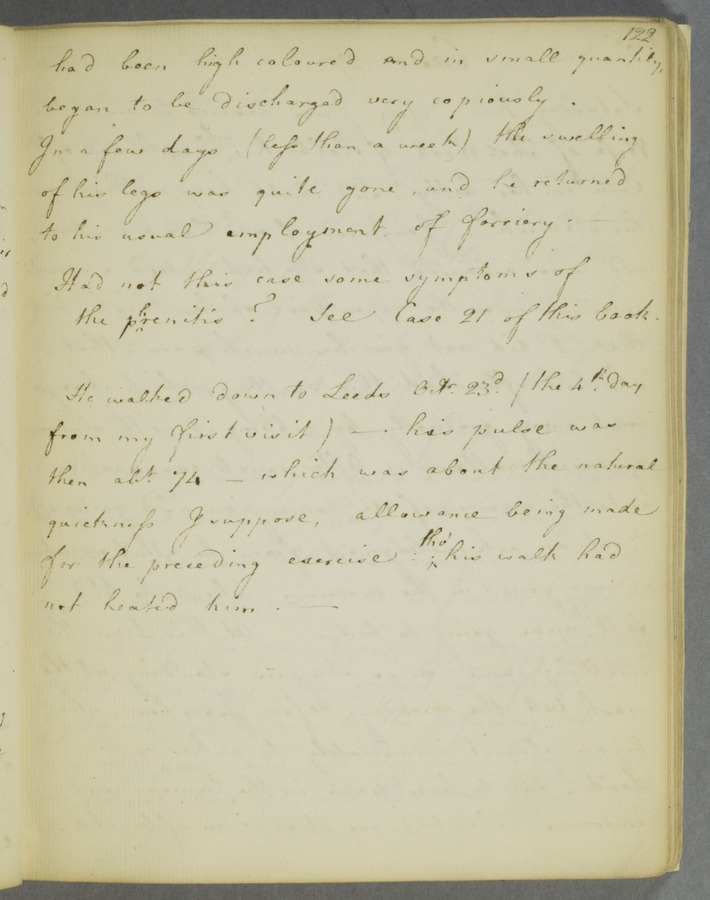 122
had been high coloured and in small quantity,
began to be discharged very copiously .
In a few days (less than a week) the swelling
of his legs was quite gone , and he returned
to his usual employment of farriery . —
Had not this case some symptoms of
the phrenitis ? See Case 21 of this book .
He walked down to Leeds Octr. 23d. (the 4th. day
from my first visit ) — his pulse was
then abt. 74 — which was about the natural
quickness I suppose, allowance being made
for the preceding exercise : tho' his walk had
not heated him . —